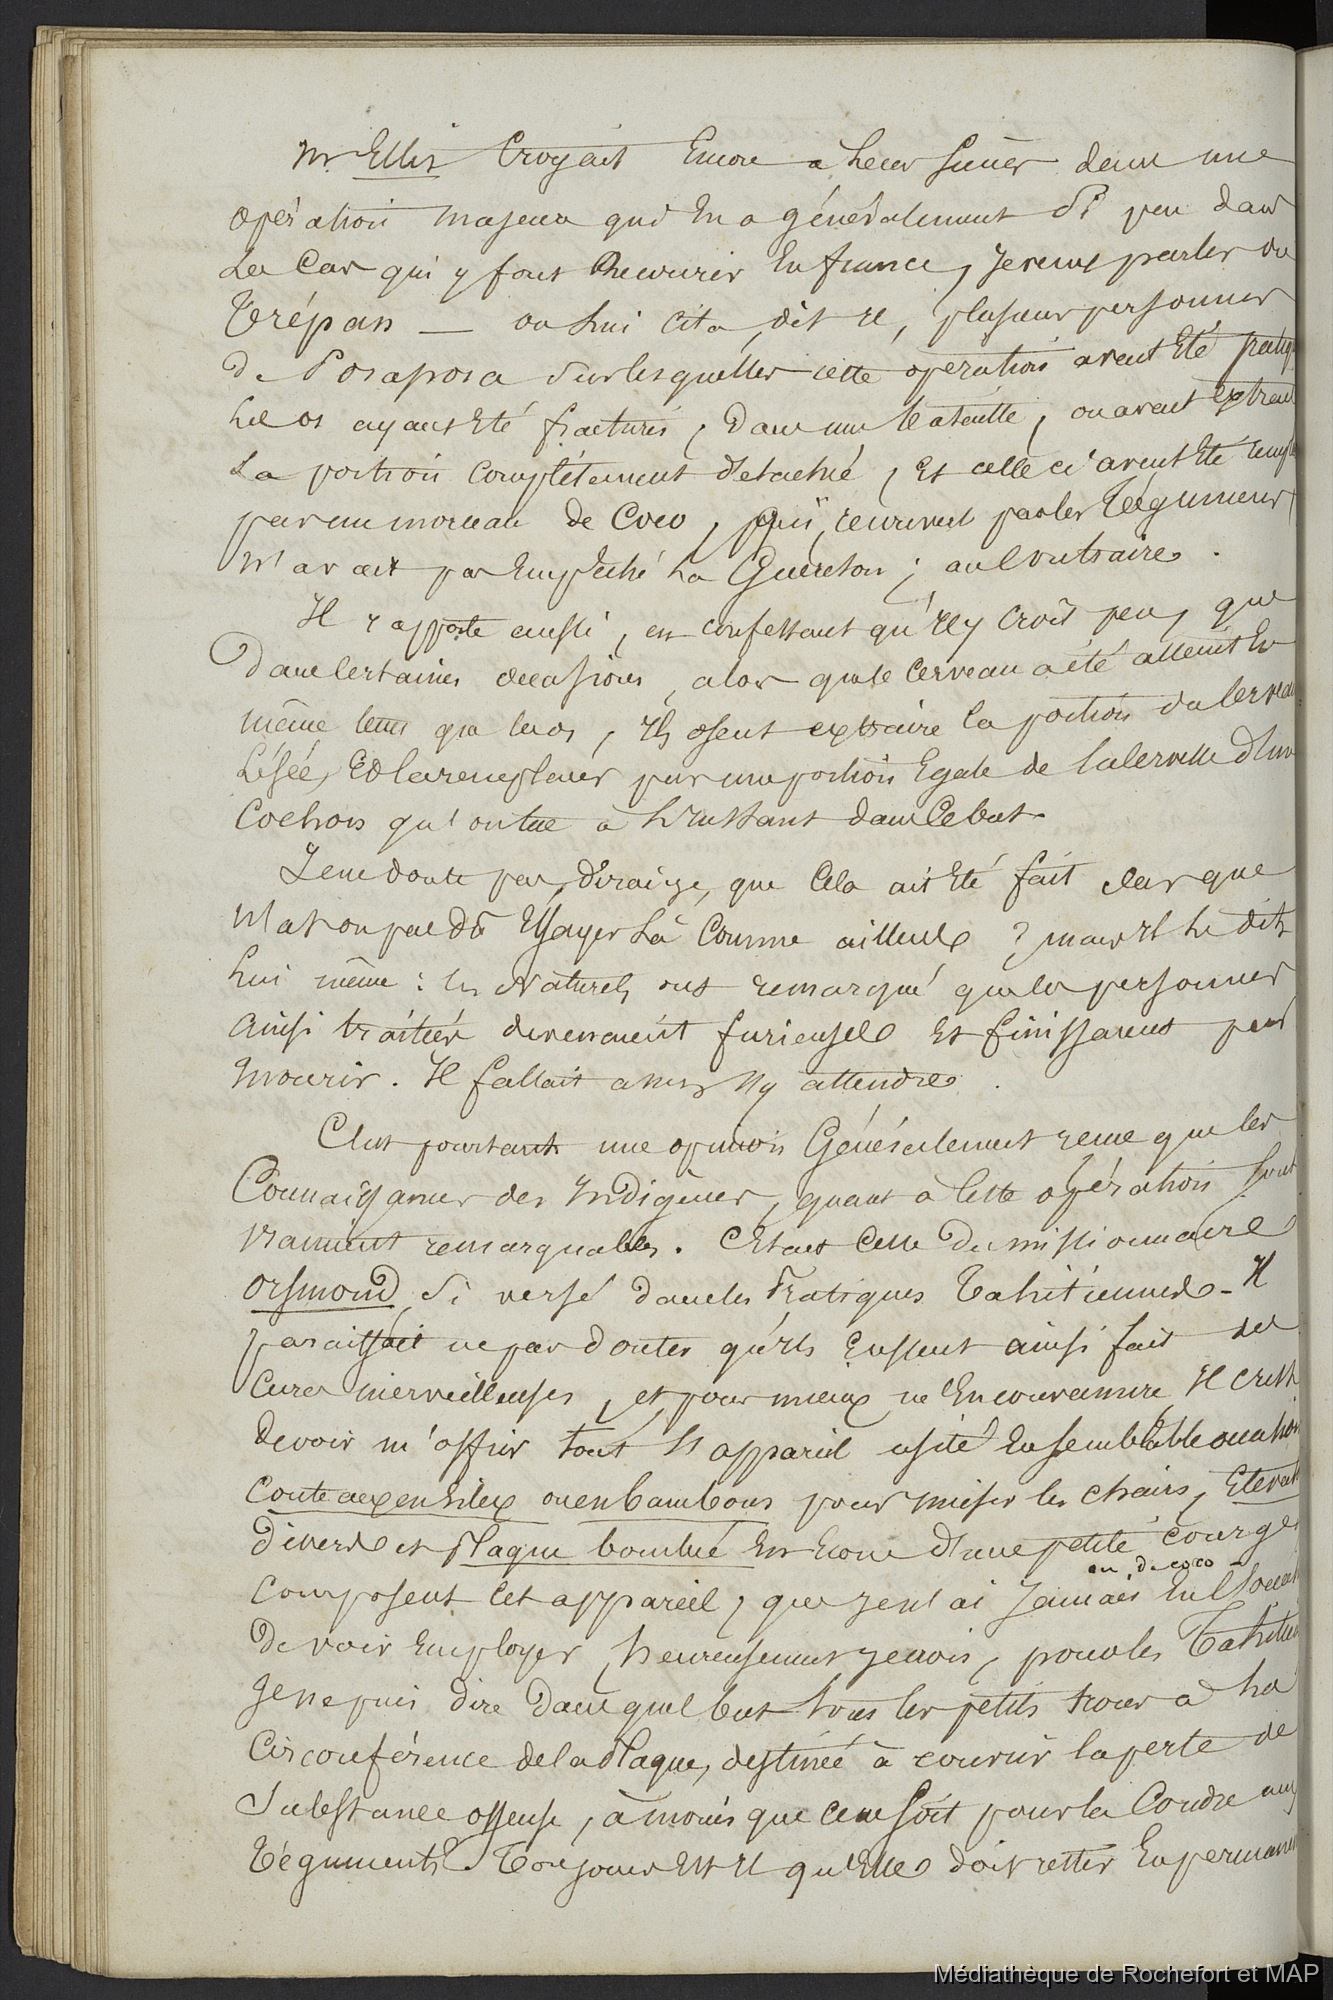 Mr Ellis Croyait Encore a leur succès dans une
opération majeure qui En a généralement Si peu dans
Les Cas qui y font Recourir En france, Je veux parler du
Trépan — on Lui cita, dit il, plusieurs personnes
de Porapora Sur lesquelles cette opération avait Eté pratiq
Les os ayant Eté fracturés, Dans une bataille, on avait Extrait
La portion Complètement détachée, Et celle ci avait Eté rempla
par un morceau de Coco, qui, recouvert par les Tégumens
N'avait pas Empêché La Guérison; au Contraire.
Il rapporte aussi, en confessant qu'Il y Croit peu, que
Dans Certaines occasions, alors que le Cerveau a été atteint En
même tems que les os, Ils osent extraire la portion du Cerveau
Lésée, Et la remplacer par une portion Egale de la Cervelle d'un
Cochon qu'on tue à L'Instant dans Ce but.
Je ne doute pas, dirai-je, que Cela ait Eté fait Car que
N'a t'on pas dû Essayer Là Comme ailleurs ? mais Il Le dit
Lui même : les Naturels ont remarqué que les personnes
Ainsi traitées devenaient furieuses Et finissaient par
Mourir. Il fallait assez s'y attendre.
C'est pourtant une opinion Généralement reçue que les
Connaissances des Indigènes, quant à Cette opération sont
Vraiment remarquables. C'Etait Celle du missionnaire
Orsmond, Si versé dans les Pratiques Tahitiennes - Il
paraissait ne pas douter qu'Ils Eussent ainsi fait des
Cures merveilleuses, et pour mieux m'En convaincre, Il crut
Devoir m'offrir tout L'appareil usité En semblable occasion
Couteaux en Silex ou en bambous pour inciser les chairs, Elevat
Divers et Plaque bombée En Ecorce d'une petite courge
ou de coco
Composent Cet appareil, que je n'ai Jamais Eu l'occas
De voir Employer, heureusement je crois, pour les Tahitie
Je ne puis dire Dans quel but tous les petits trous à La
Circonférence de la Plaque, destinée à couvrir la perte de
Substance osseuse, à moins que Ce ne soit pour la Coudre aux
Téguments. Toujours Est Il qu'Elle doit rester En permanen